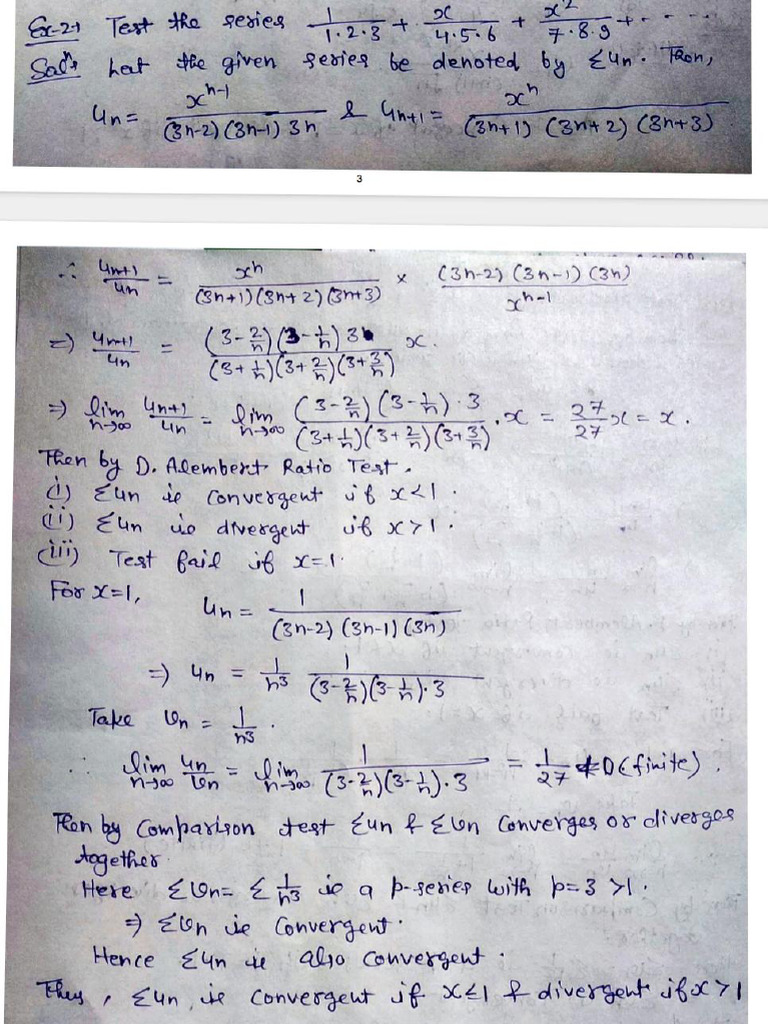 Ex-21 Test the series 1/(1·2·3) + x/(4·5·6) + x²/(7·8·9) + - - - -
Solⁿ: Let the given series be denoted by Σun. Then,
un = x^(n-1)/((3n-2)(3n-1) 3n) & un+1 = x^n/((3n+1)(3n+2)(3n+3))
3
∴ un+1/un = x^n/((3n+1)(3n+2)(3n+3)) × ((3n-2)(3n-1)(3n))/x^(n-1)
⇒ un+1/un = ((3-2/n)(3-1/n)3)/((3+1/n)(3+2/n)(3+3/n)) x.
⇒ lim n→∞ un+1/un = lim n→∞ ((3-2/n)(3-1/n)·3)/((3+1/n)(3+2/n)(3+3/n)) · x = 27/27 x = x.
Then by D. Alembert Ratio Test.
(i) Σun is convergent if x<1.
(ii) Σun is divergent if x>1.
(iii) Test fail if x=1.
For x=1, un = 1/((3n-2)(3n-1)(3n))
⇒ un = 1/n³ 1/((3-2/n)(3-1/n)·3)
Take vn = 1/n³.
∴ lim n→∞ un/vn = lim n→∞ 1/((3-2/n)(3-1/n)·3) = 1/27 ≠ 0 (finite).
Then by comparison test Σun & Σvn converges or diverges
together.
Here Σvn = Σ 1/n³ is a p-series with p=3 >1.
⇒ Σvn is convergent.
Hence Σun is also convergent.
Thus, Σun is convergent if x≤1 & divergent if x>1